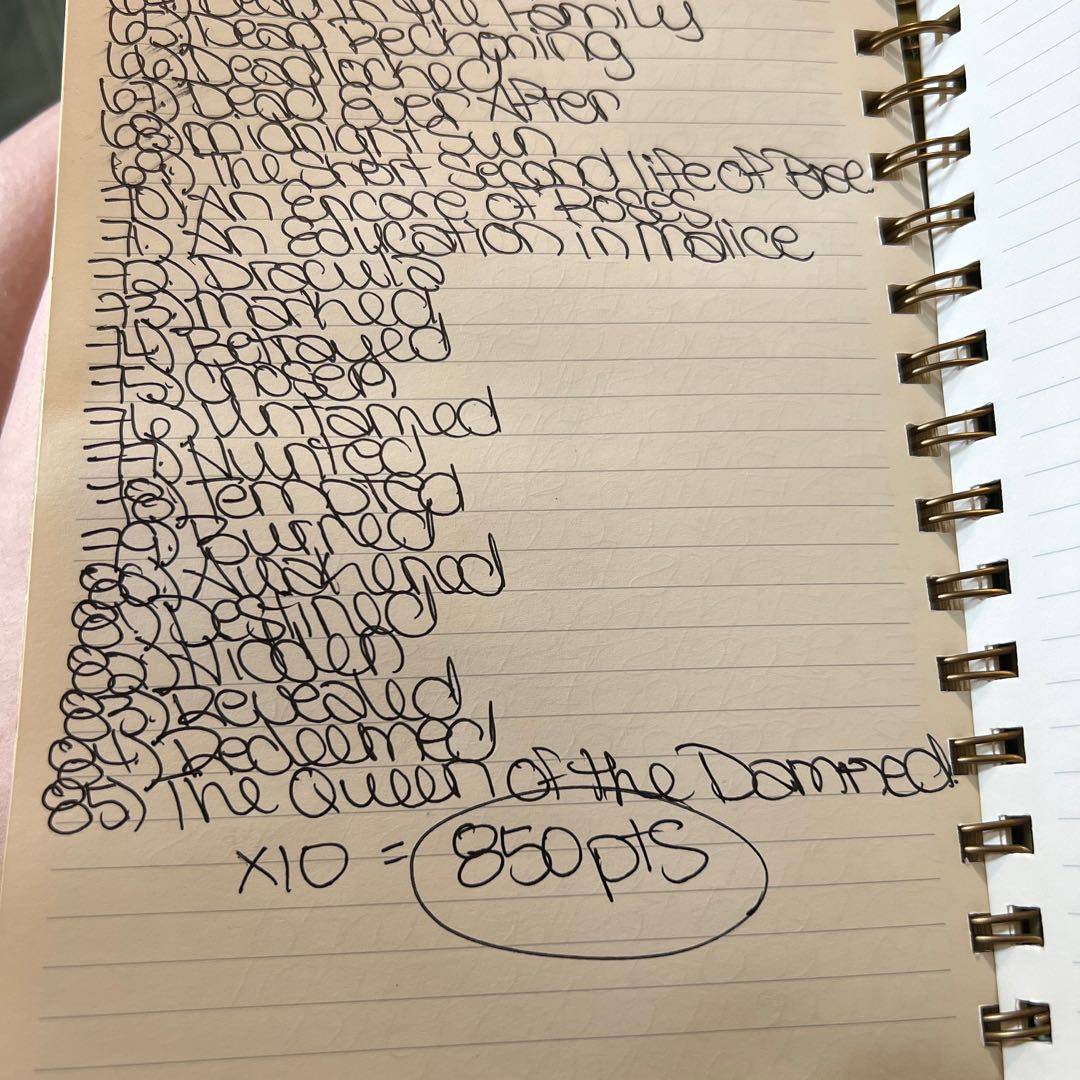 in the Family
65.) Dead Reckoning
66.) Deadlocked
67.) Dead Ever After
68.) midnight Sun
69.) The Short Second life of Bree
70.) An Encore of Roses
71.) An Education in Malice
72.) Dracula
73.) Marked
74.) Betrayed
75.) Chosen
76.) Untamed
77.) Hunted
78.) Tempted
79.) Burned
80.) Awakened
81.) Destined
82.) Hidden
83.) Revealed
84.) Redeemed
85.) The Queen of the Damned
x10 = 850pts